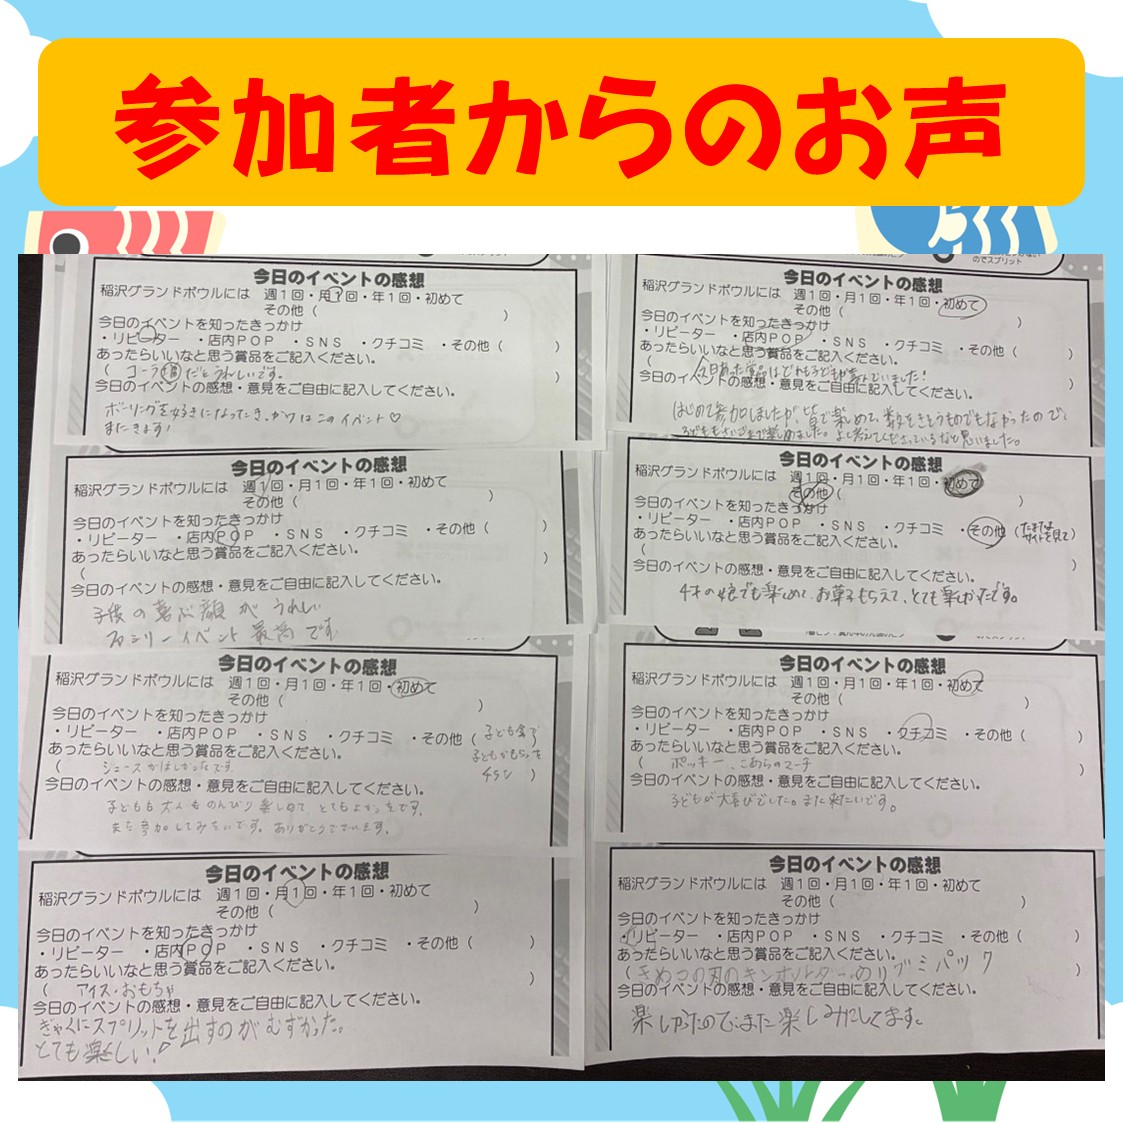 参加者からのお声
今日のイベントの感想
稲沢グランドボウルには 週1回・月1回・年1回・初めて
その他( )
今日のイベントを知ったきっかけ
・リピーター ・店内POP ・SNS ・クチコミ ・その他( )
あったらいいなと思う賞品をご記入ください。
( コーラ1箱だとうれしいです。 )
今日のイベントの感想・意見をご自由に記入してください。
ボーリングを好きになったきっかけはこのイベント♡
またきます!
今日のイベントの感想
稲沢グランドボウルには 週1回・月1回・年1回・初めて
その他( )
今日のイベントを知ったきっかけ
・リピーター ・店内POP ・SNS ・クチコミ ・その他( )
あったらいいなと思う賞品をご記入ください。
( )
今日のイベントの感想・意見をご自由に記入してください。
子後の喜ぶ顔が うれしい
ファミリーイベント 最高です
今日のイベントの感想
稲沢グランドボウルには 週1回・月1回・年1回・初めて
その他( )
今日のイベントを知ったきっかけ
・リピーター ・店内POP ・SNS ・クチコミ ・その他( 子ども会で
子どもがもらった
チラシ )
あったらいいなと思う賞品をご記入ください。
( ジュースがほしかったです )
今日のイベントの感想・意見をご自由に記入してください。
子どもも大人ものんびり楽しめて とてもよかったです。
また参加してみたいです。ありがとうございます。
今日のイベントの感想
稲沢グランドボウルには 週1回・月1回・年1回・初めて
その他( )
今日のイベントを知ったきっかけ
・リピーター ・店内POP ・SNS ・クチコミ ・その他( )
あったらいいなと思う賞品をご記入ください。
( アイス・おもちゃ )
今日のイベントの感想・意見をご自由に記入してください。
ぎゃくにスプリットを出すのがむずかった。
とても楽しい!
のでスプリット
今日のイベントの感想
稲沢グランドボウルには 週1回・月1回・年1回・初めて
その他( )
今日のイベントを知ったきっかけ
・リピーター ・店内POP ・SNS ・クチコミ ・その他( )
あったらいいなと思う賞品をご記入ください。
( 今日あった賞品はどれも子どもが喜んでいました! )
今日のイベントの感想・意見をご自由に記入してください。
はじめて参加しましたが、皆で楽しめて、数をきそうものでもなかったので、
子どももさいごまで楽しめました。よく考えてくださっているなと思いました。
今日のイベントの感想
稲沢グランドボウルには 週1回・月1回・年1回・初めて
その他( )
今日のイベントを知ったきっかけ
・リピーター ・店内POP ・SNS ・クチコミ ・その他( たまたま
サイトを見て )
あったらいいなと思う賞品をご記入ください。
( )
今日のイベントの感想・意見をご自由に記入してください。
4才の娘でも楽しめて、お菓子もらえて、とても楽しかったです。
今日のイベントの感想
稲沢グランドボウルには 週1回・月1回・年1回・初めて
その他( )
今日のイベントを知ったきっかけ
・リピーター ・店内POP ・SNS ・クチコミ ・その他( )
あったらいいなと思う賞品をご記入ください。
( ポッキー、こあらのマーチ )
今日のイベントの感想・意見をご自由に記入してください。
子どもが大喜びでした。また来たいです。
今日のイベントの感想
稲沢グランドボウルには 週1回・月1回・年1回・初めて
その他( )
今日のイベントを知ったきっかけ
・リピーター ・店内POP ・SNS ・クチコミ ・その他( )
あったらいいなと思う賞品をご記入ください。
( きめつの刃のキーホルダー、めりグミパック )
今日のイベントの感想・意見をご自由に記入してください。
楽しかったのでまた楽しみにしてます。